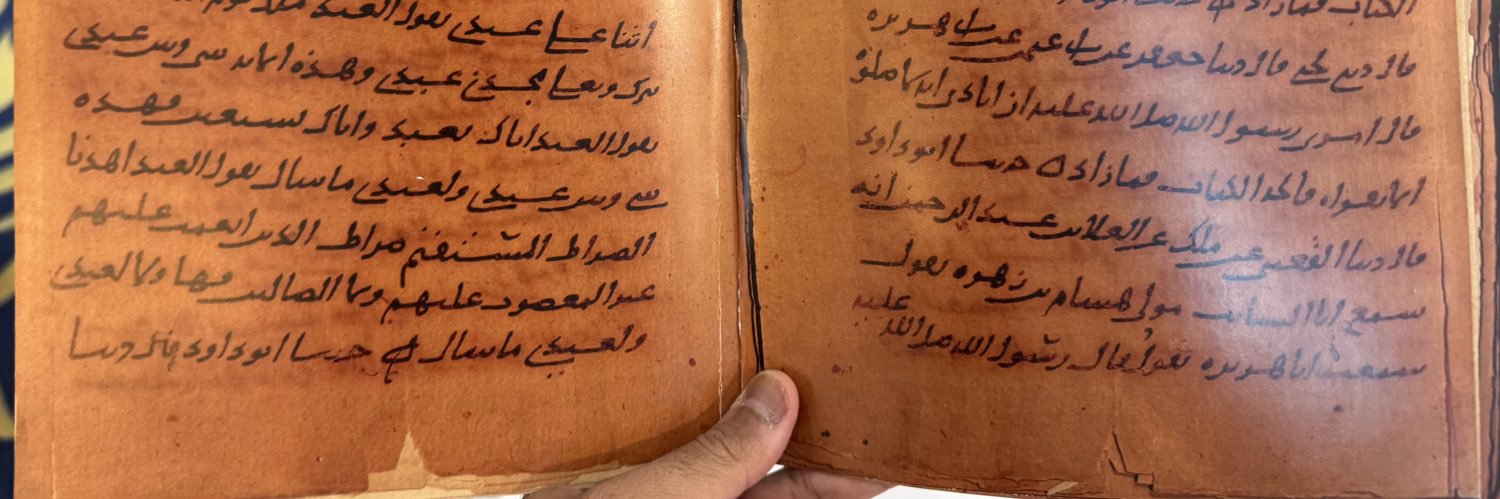 الكتاب فما زاد
قال دنا يحيى قال دنا جعفر عن ابي عثمن عن ابي هريره
قال امرني رسول الله صلى الله عليه ان انادي انه لا صلوة
الا بقراه فاتحة الكتاب فما زاد حدثنا ابو داود
قال دنا القعنبي عن ملك عن العلا بن عبد الرحمن انه
سمع ابا السايب مولى هشام بن زهره يقول
سمعت ابا هريره يقول قال رسول الله صلى الله عليه
اثنا على عبدي يقول العبد ملك يوم
تبرك وتعلى مجدني عبدي وهذه الايه بيني وبين عبدي
يقول العبد اياك نعبد واياك نستعين فهذه
بيني وبين عبدي ولعبدي ما سال يقول العبد اهدنا
الصراط المستقيم صراط الذين انعمت عليهم
غير المغضوب عليهم ولا الضالين فهاولا لعبدي
ولعبدي ما سال حدثنا ابو داود قال دنا